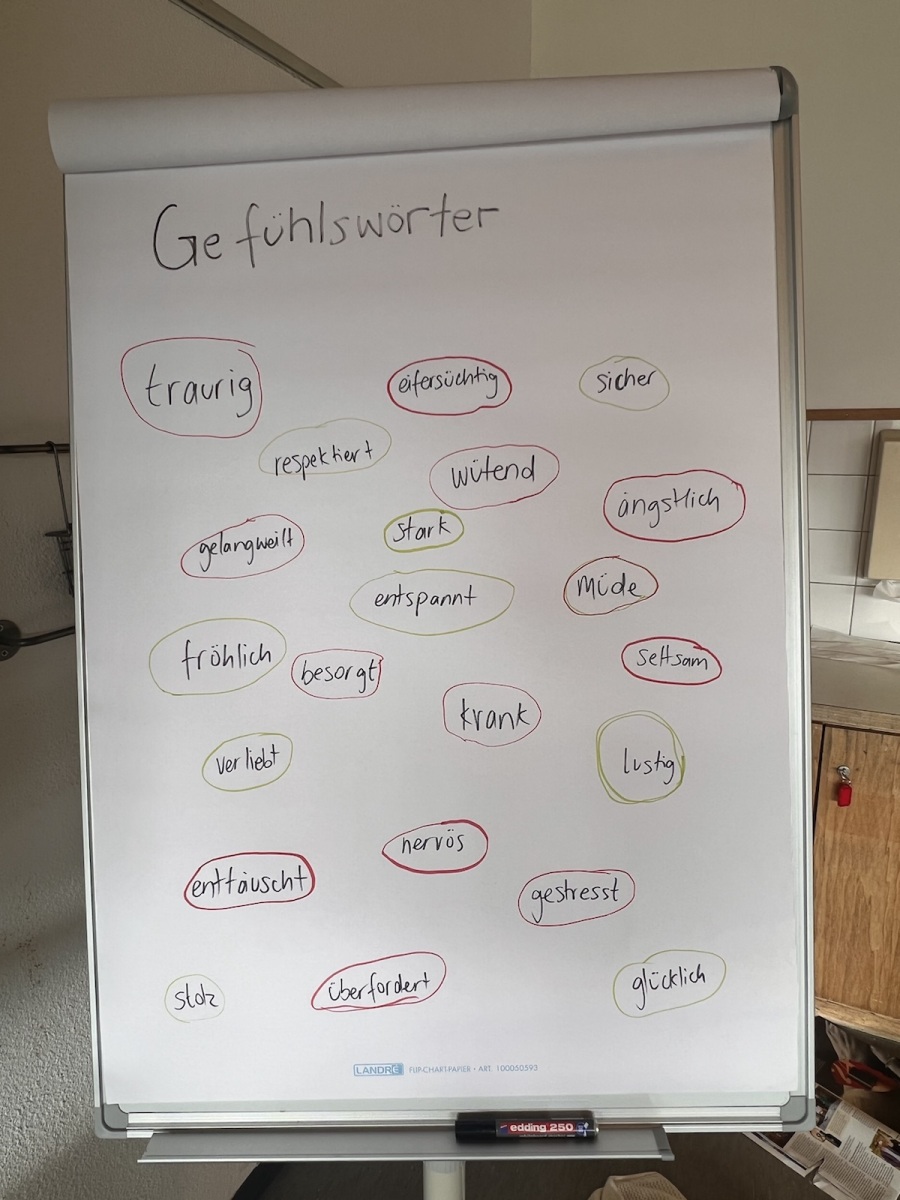 Gefühlswörter
traurig
eifersüchtig
sicher
respektiert
wütend
ängstlich
gelangweilt
stark
entspannt
müde
fröhlich
besorgt
seltsam
krank
verliebt
lustig
nervös
enttäuscht
gestresst
stolz
überfordert
glücklich
LANDRÉ FLIP-CHART-PAPIER • ART. 100050593
edding 250